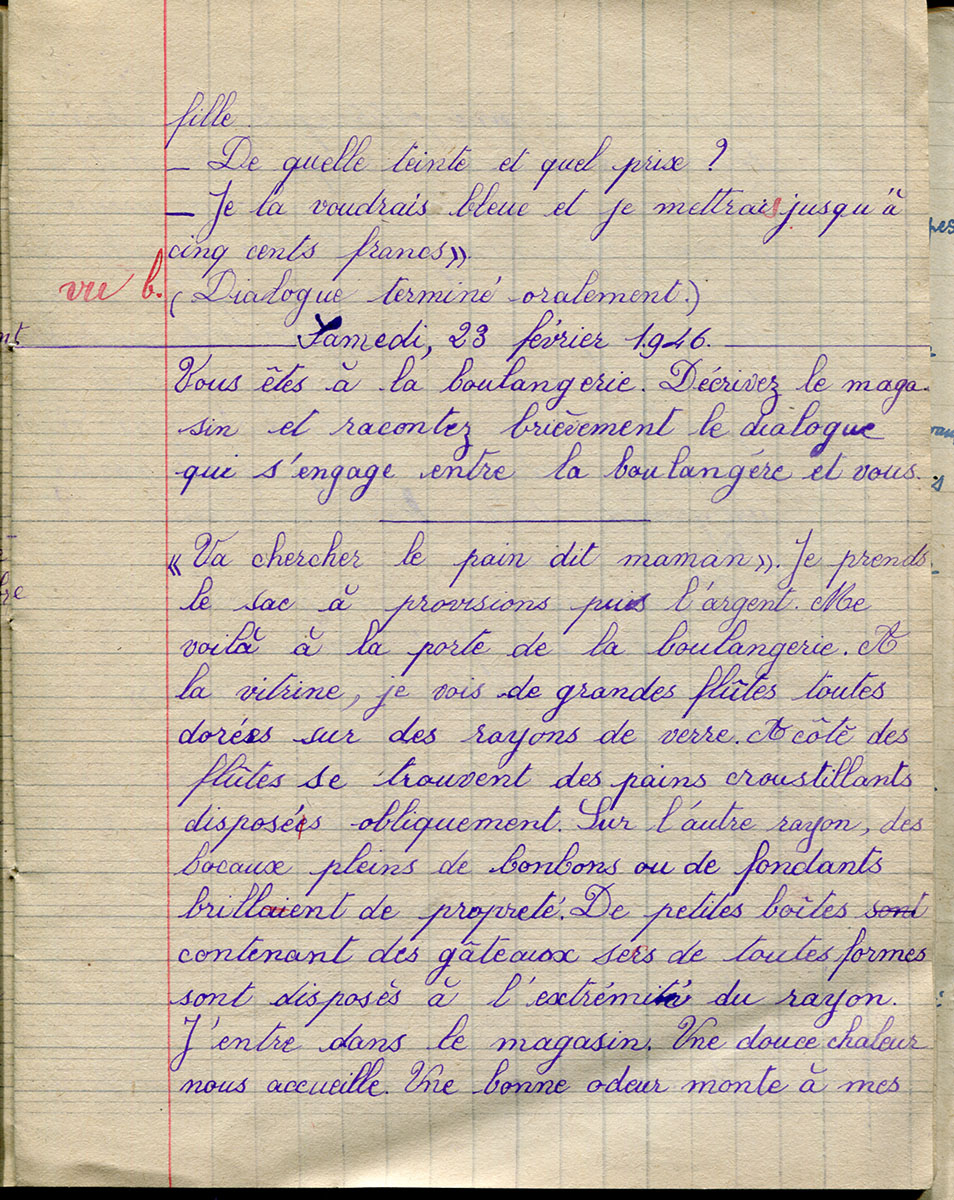 fille
– De quelle teinte et quel prix ?
– Je la voudrais bleue et je mettrais jusqu'à
cinq cents francs».
vu b. (Dialogue terminé oralement.)
Samedi, 23 février 1946.
Vous êtes à la boulangerie. Décrivez le maga-
sin et racontez brièvement le dialogue
qui s'engage entre la boulangère et vous.
«Va chercher le pain dit maman». Je prends
le sac à provisions puis l'argent. Me
voilà à la porte de la boulangerie. A
la vitrine, je vois de grandes flûtes toutes
dorées sur des rayons de verre. A côté des
flûtes se trouvent des pains croustillants
disposés obliquement. Sur l'autre rayon, des
bocaux pleins de bonbons ou de fondants
brillaient de propreté. De petites boîtes sont
contenant des gâteaux secs de toutes formes
sont disposés à l'extrémité du rayon.
J'entre dans le magasin. Une douce chaleur
nous accueille. Une bonne odeur monte à mes